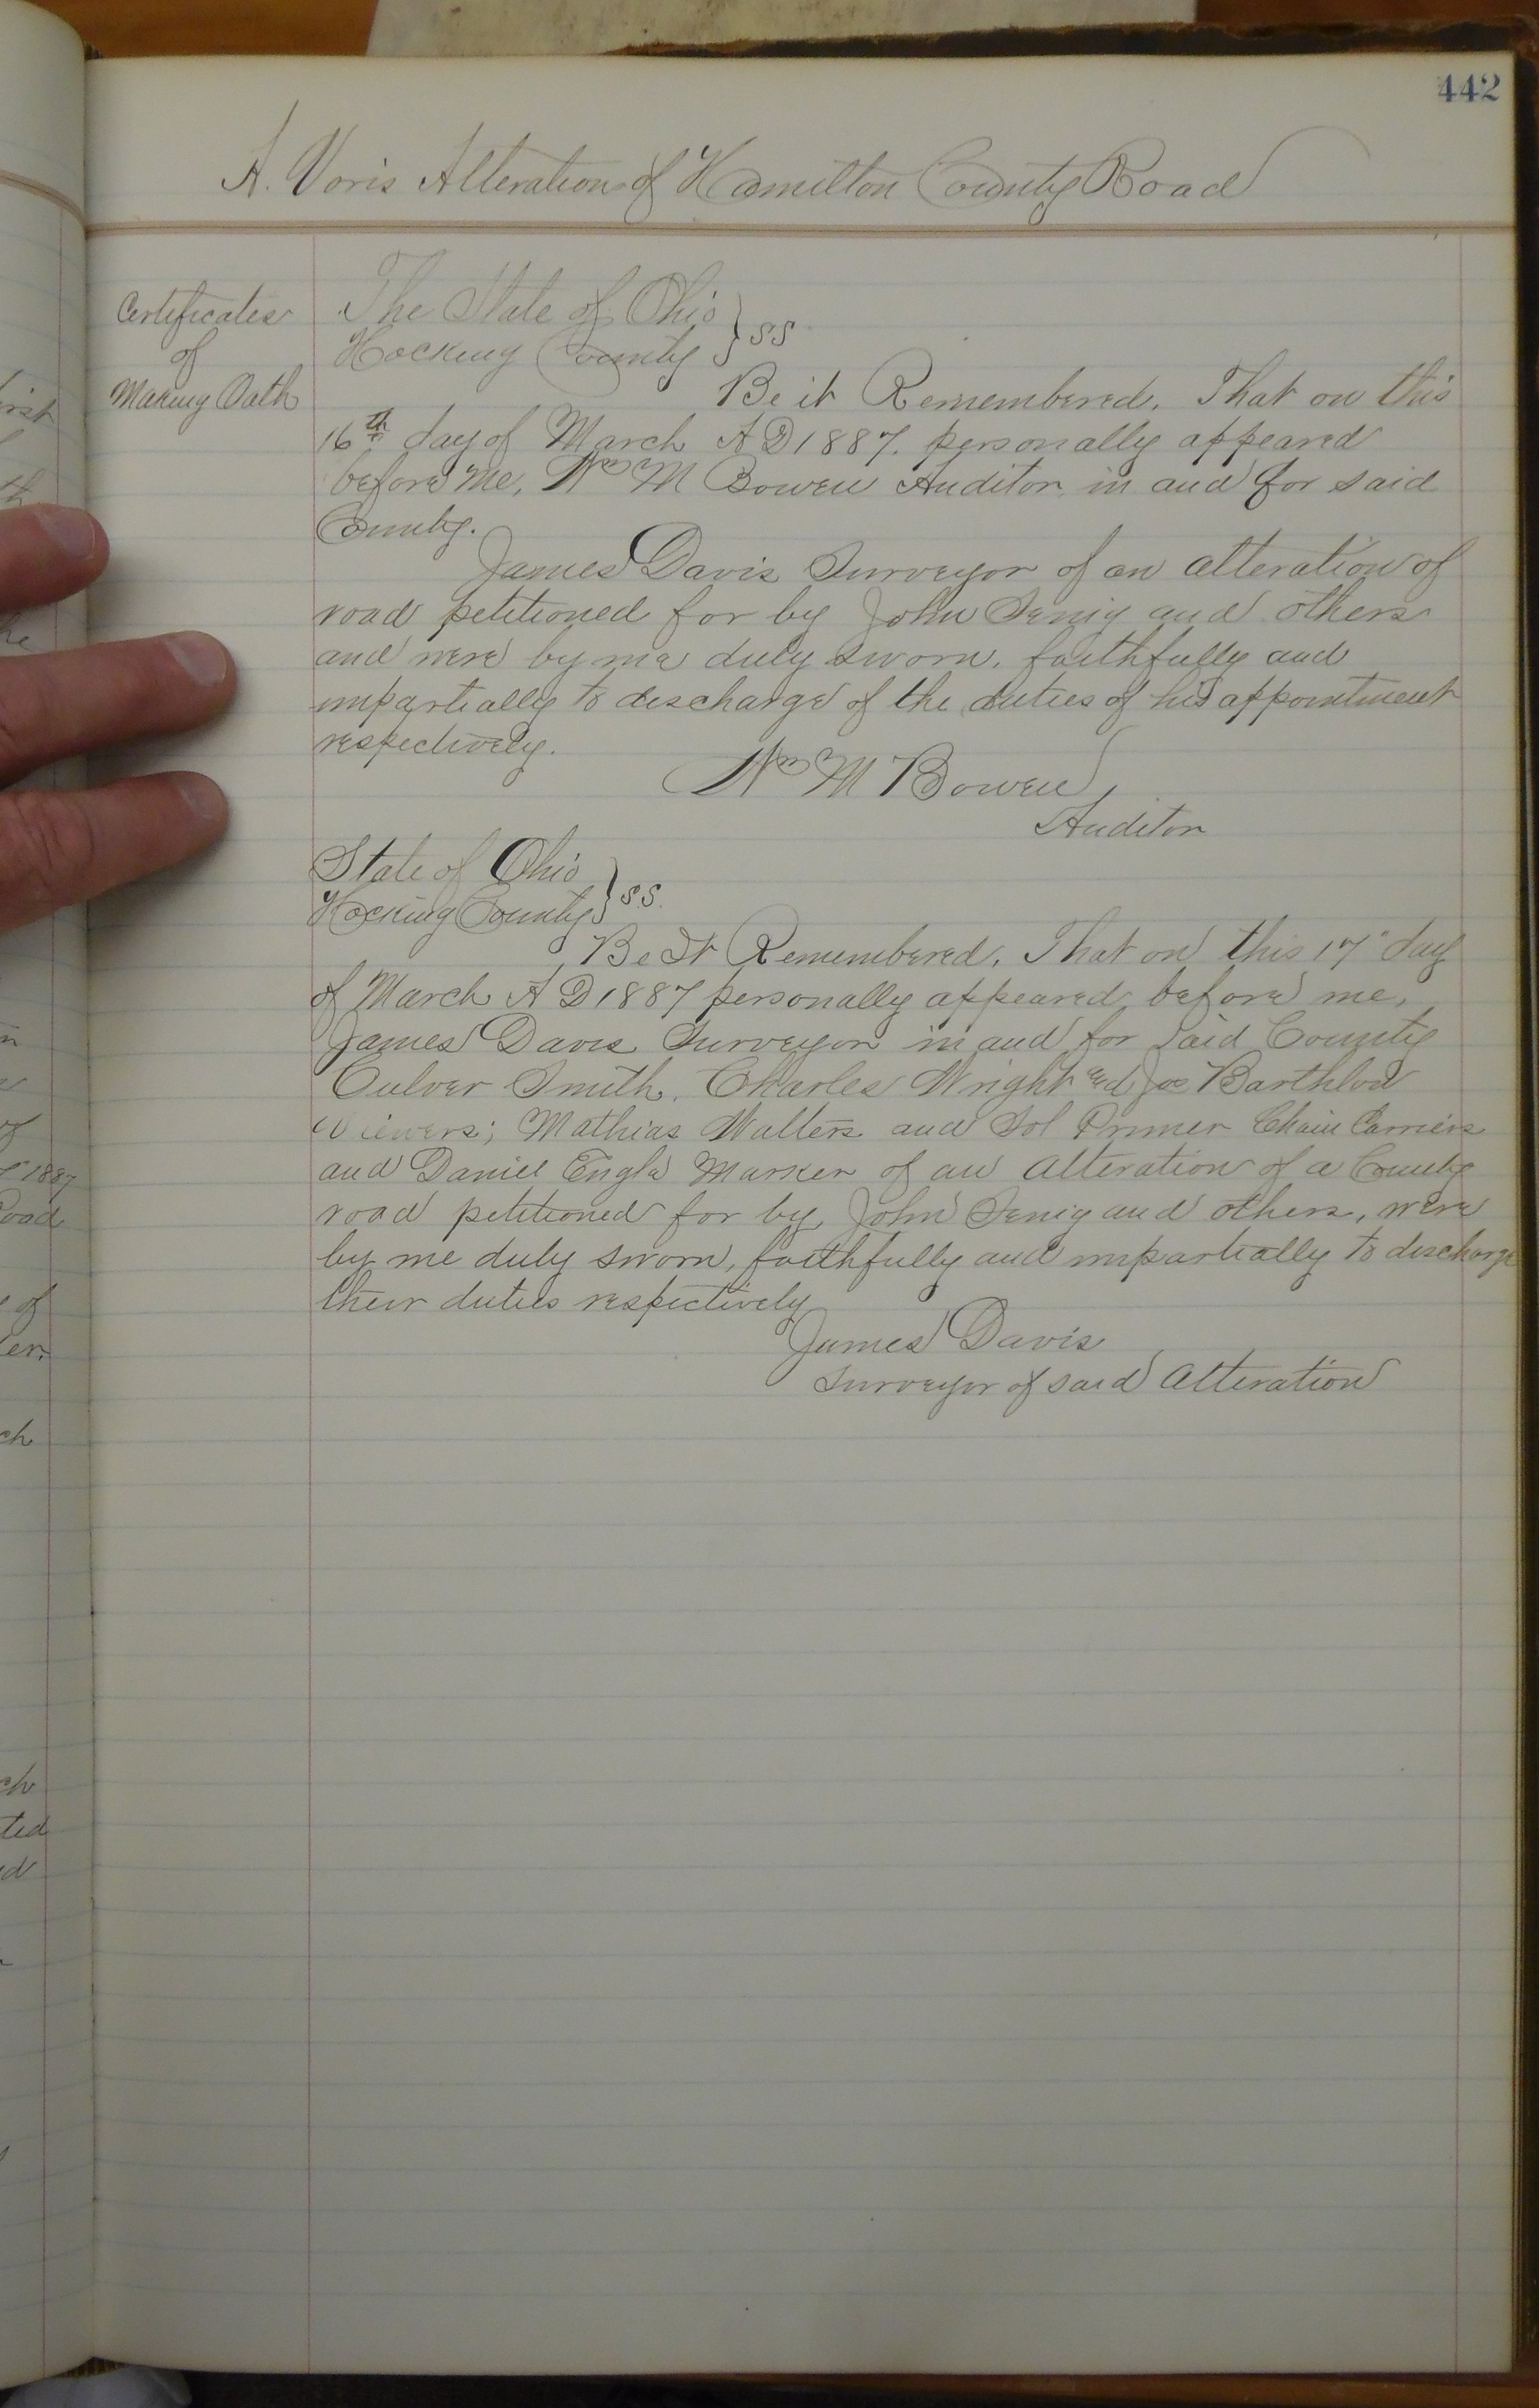 442
A. Voris Alteration of Hamilton County Road
Certificates
of
Making Oath
The State of Ohio
Hocking County } SS
Be it Remembered. That on this
16th day of March A D 1887. personally appeared
before me, Wm M Bowen Auditor in and for said
County.
James Davis Surveyor of an alteration of
road petitioned for by John and others
and were by me duly sworn, faithfully and
impartially to discharge of the duties of his appointment
respectively.
Wm M Bowen
Auditor
State of Ohio
Hocking County } SS.
Be It Remembered. That on this 17" day
of March A D 1887 personally appeared before me,
James Davis Surveyor in and for Said County
Culver Smith. Charles Wright and Joe
Viewers; Mathias Walters and Sol Primer Chain Carriers
and Daniel Engle Marker of an alteration of a County
road petitioned for by John and others, were
by me duly sworn, faithfully and impartially to discharge
their duties respectively
James Davis
Surveyor of said Alteration
1887
Road
of
ch
ted